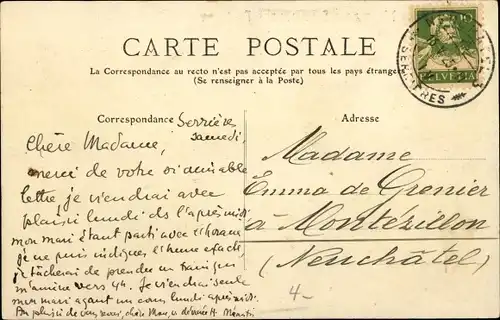 CARTE POSTALE
La Correspondance au recto n'est pas acceptée par tous les pays étrangers
(Se renseigner à la Poste)
10
HELVETIA
SERRIÈRES
Correspondance
Adresse
Serrières
samedi,
Chère Madame,
merci de votre si aimable
lettre, je viendrai avec
plaisir lundi dès l'après-midi
mon mari étant parti avec l'horaire
je ne puis indiquer l'heure exacte,
je tâcherai de prendre un train qui
m'amène vers 4h. Je viendrai seule
mon mari ayant un cours lundi après-midi.
Au plaisir de vous revoir, chère Mme,
Madame
Emma de Grenier
à Montézillon
(Neuchâtel)
4-